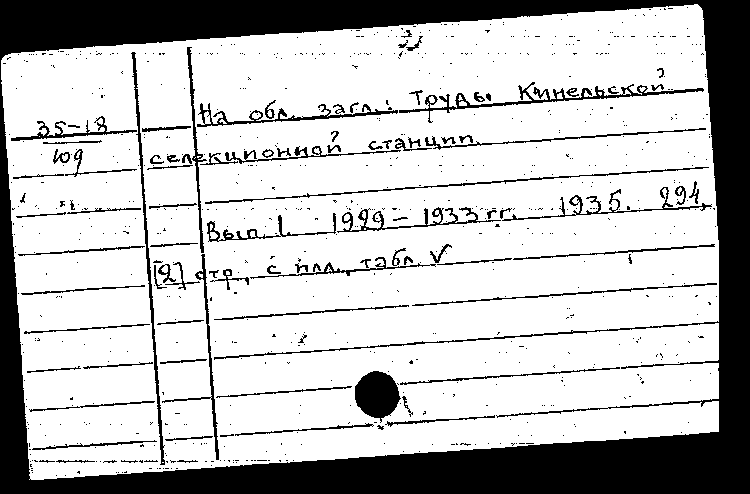 На обл. загл.: Труды Кинельской
35-18
109
селекционной станции.
Вып. 1. 1929-1933 гг. 1935. 294,
[2] стр., с илл., табл. √